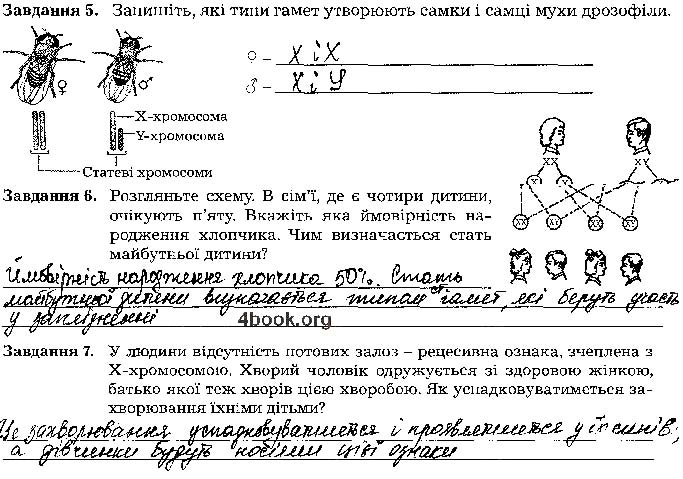 Завдання 5. Запишіть, які типи гамет утворюють самки і самці мухи дрозофіли.
♀ – X і X
♂ – X і У
♀ ♂
X-хромосома
Y-хромосома
Статеві хромосоми
XX XY
X X X Y
XX XY XX XY
Завдання 6. Розгляньте схему. В сім'ї, де є чотири дитини,
очікують п'яту. Вкажіть яка ймовірність на-
родження хлопчика. Чим визначається стать
майбутньої дитини?
Ймовірність народження хлопчика 50%. Стать
майбутньої дитини визначається типом гамет, які беруть участь
у заплідненні
4book.org
Завдання 7. У людини відсутність потових залоз – рецесивна ознака, зчеплена з
X-хромосомою. Хворий чоловік одружується зі здоровою жінкою,
батько якої теж хворів цією хворобою. Як успадковуватиметься за-
хворювання їхніми дітьми?
Це захворювання успадковуватиметься і проявлятиметься у їх синів,
а дівчинки будуть носіями цієї ознаки